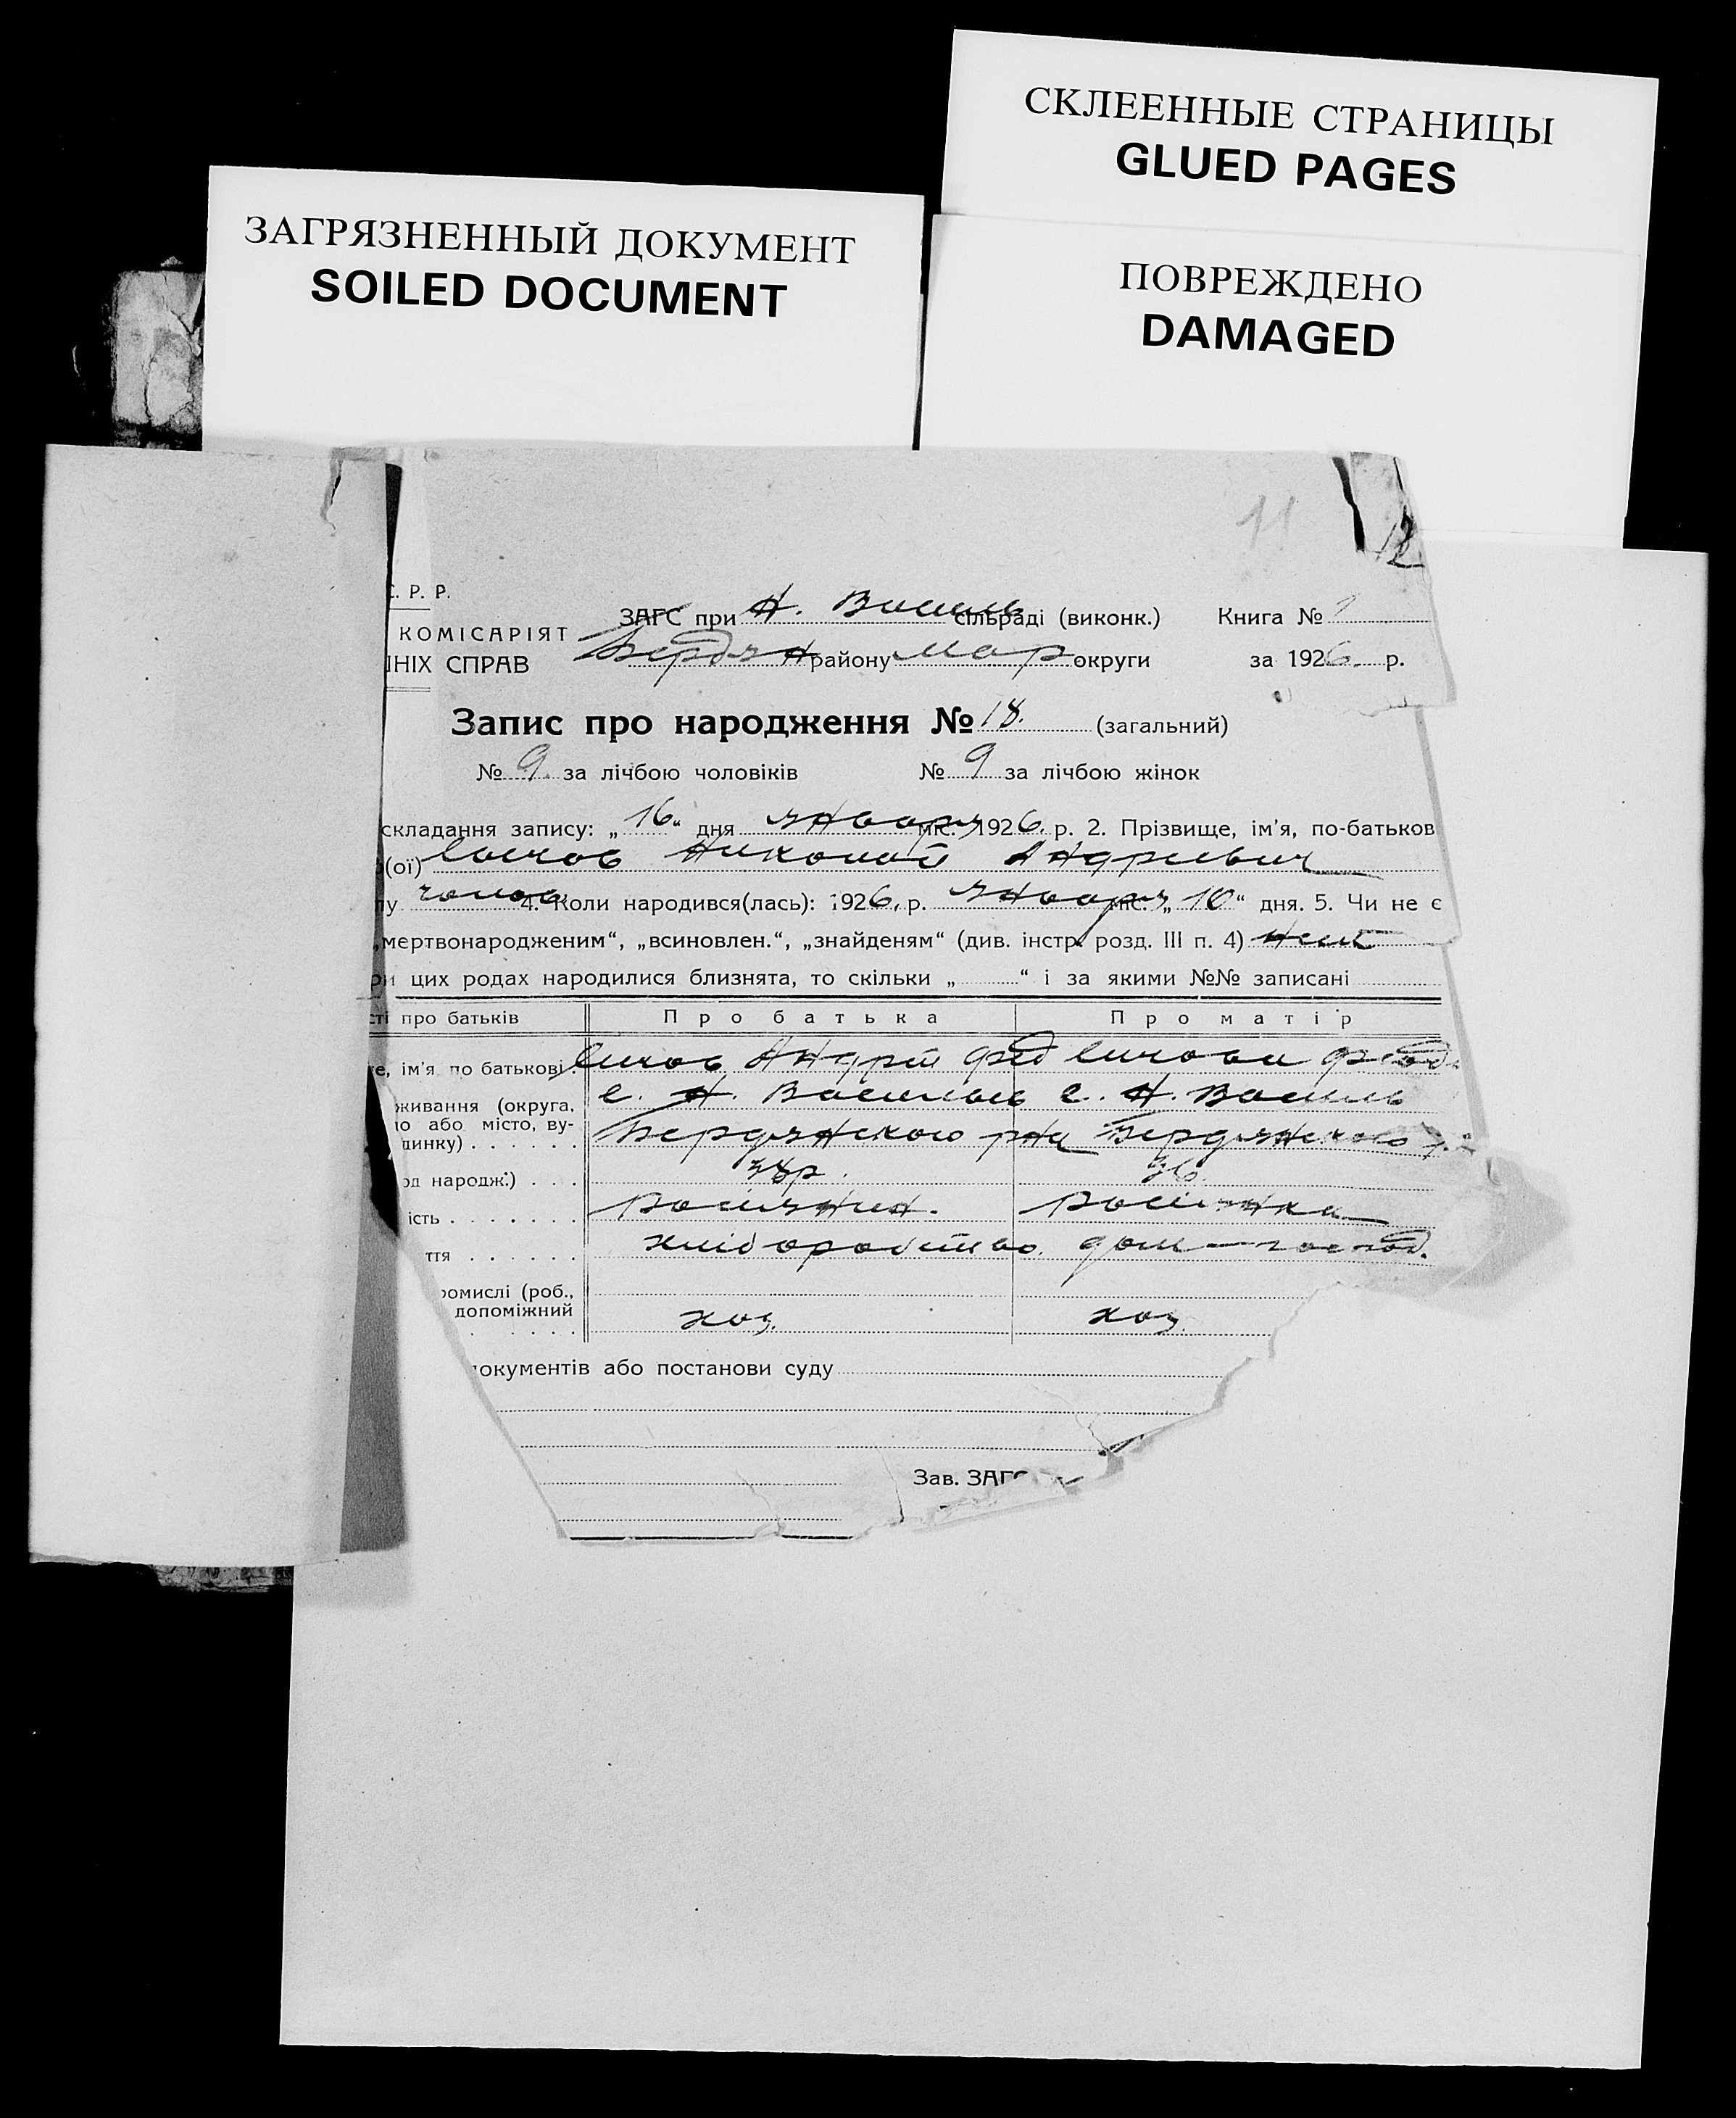 СКЛЕЕННЫЕ СТРАНИЦЫ
GLUED PAGES
ЗАГРЯЗНЕННЫЙ ДОКУМЕНТ
SOILED DOCUMENT
ПОВРЕЖДЕНО
DAMAGED
11
С. Р. Р.
КОМІСАРІЯТ
НІХ СПРАВ
ЗАГС при Н. Василь сільраді (виконк.) Книга №
Бердян району Мар округи за 1926 р.
Запис про народження № 18. (загальний)
№ 9. за лічбою чоловіків № 9 за лічбою жінок
складання запису: „16.“ дня января міс. 1926. р. 2. Прізвище, ім’я, по-батьков
(ої) Николай Андреевич
у чолов. 4. Коли народився(лась): 1926. р. января міс. „10“ дня. 5. Чи не є
„мертвонародженим“, „всиновлен.“, „знайденям“ (див. інстр. розд. III п. 4) нет
ри цих родах народилися близнята, то скільки „ “ і за якими №№ записані
сті про батьків Про батька Про матір
е, ім’я по батькові Андрій Фед
живання (округа, с. Н. Васильев с. Н. Василь
о або місто, ву-
динку) Бердянского рна Бердянского
од народж.)
ість росіянин. росіянка
ття хліборобство. дом
ромислі (роб.,
допоміжний хоз. хоз.
документів або постанови суду
Зав. ЗАГС